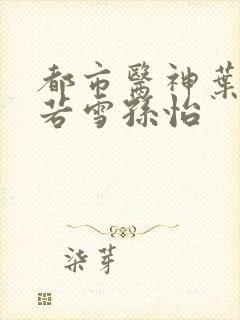 都市醫神葉
若雪孫怡
柒芽